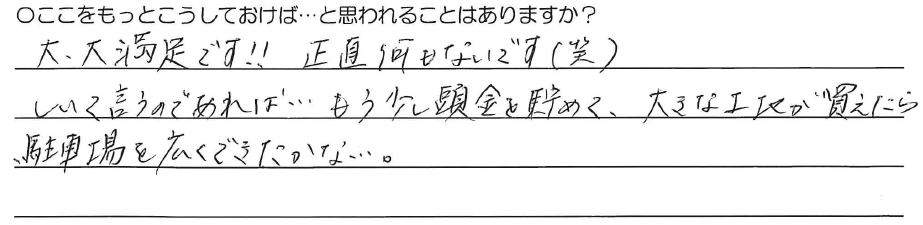 ○ここをもっとこうしておけば…と思われることはありますか？
大、大満足です!! 正直何もないです(笑)
しいて言うのであれば… もう少し頭金を貯めて、大きな土地が買えたら
駐車場を広くできたかな…。